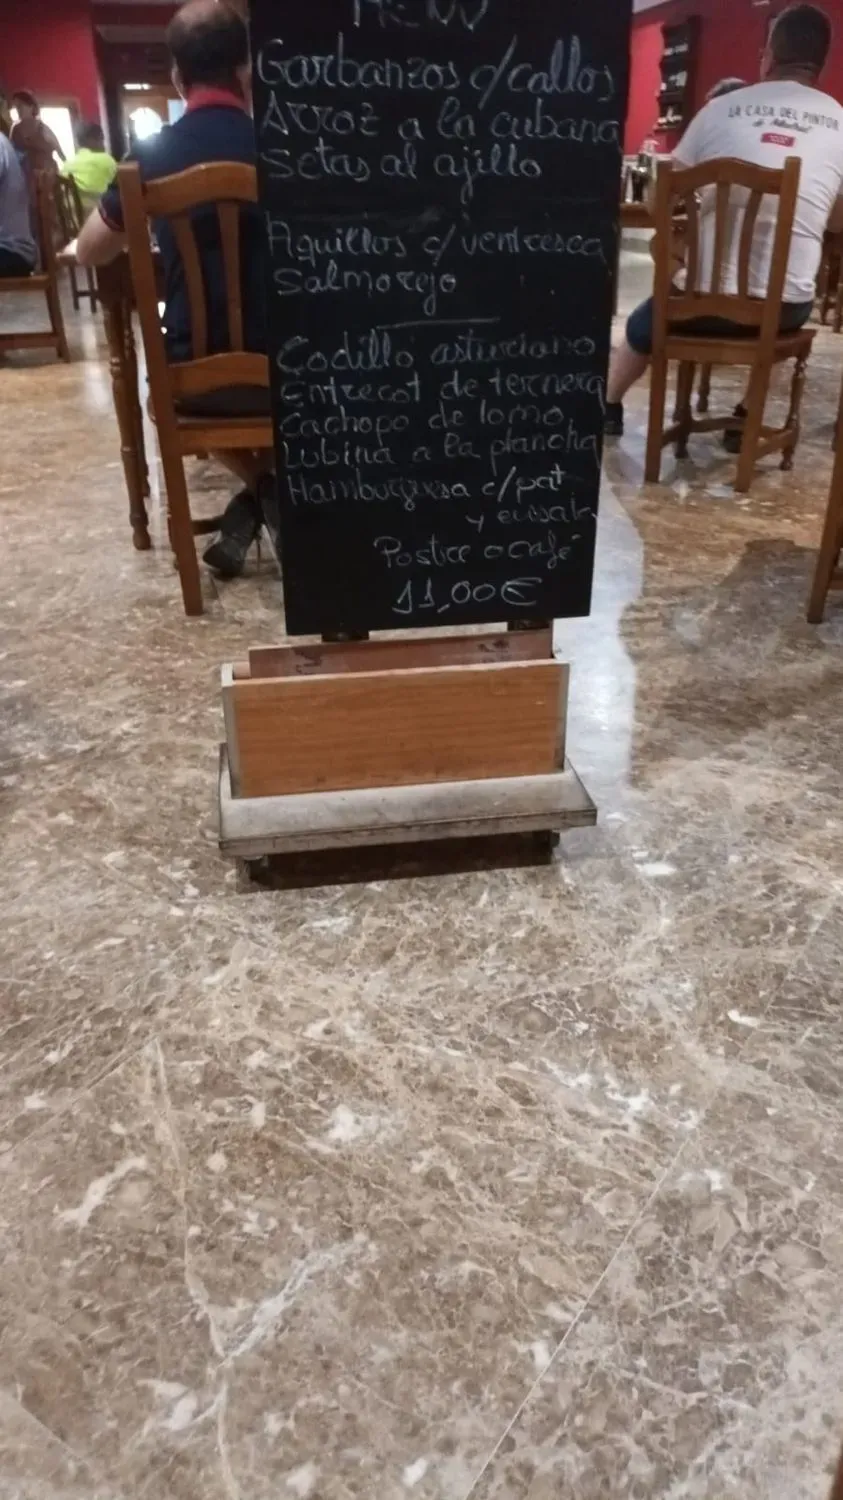 MENU
Garbanzos c/callos
Arroz a la cubana
Setas al ajillo
Aquillos c/ ventresca
Salmorejo
Codillo asturiano
Entrecot de ternera
Cachopo de lomo
Lubina a la plancha
Hamburguesa c/pat
y ensala
Postre o café
11,00€
LA CASA DEL PINTOR